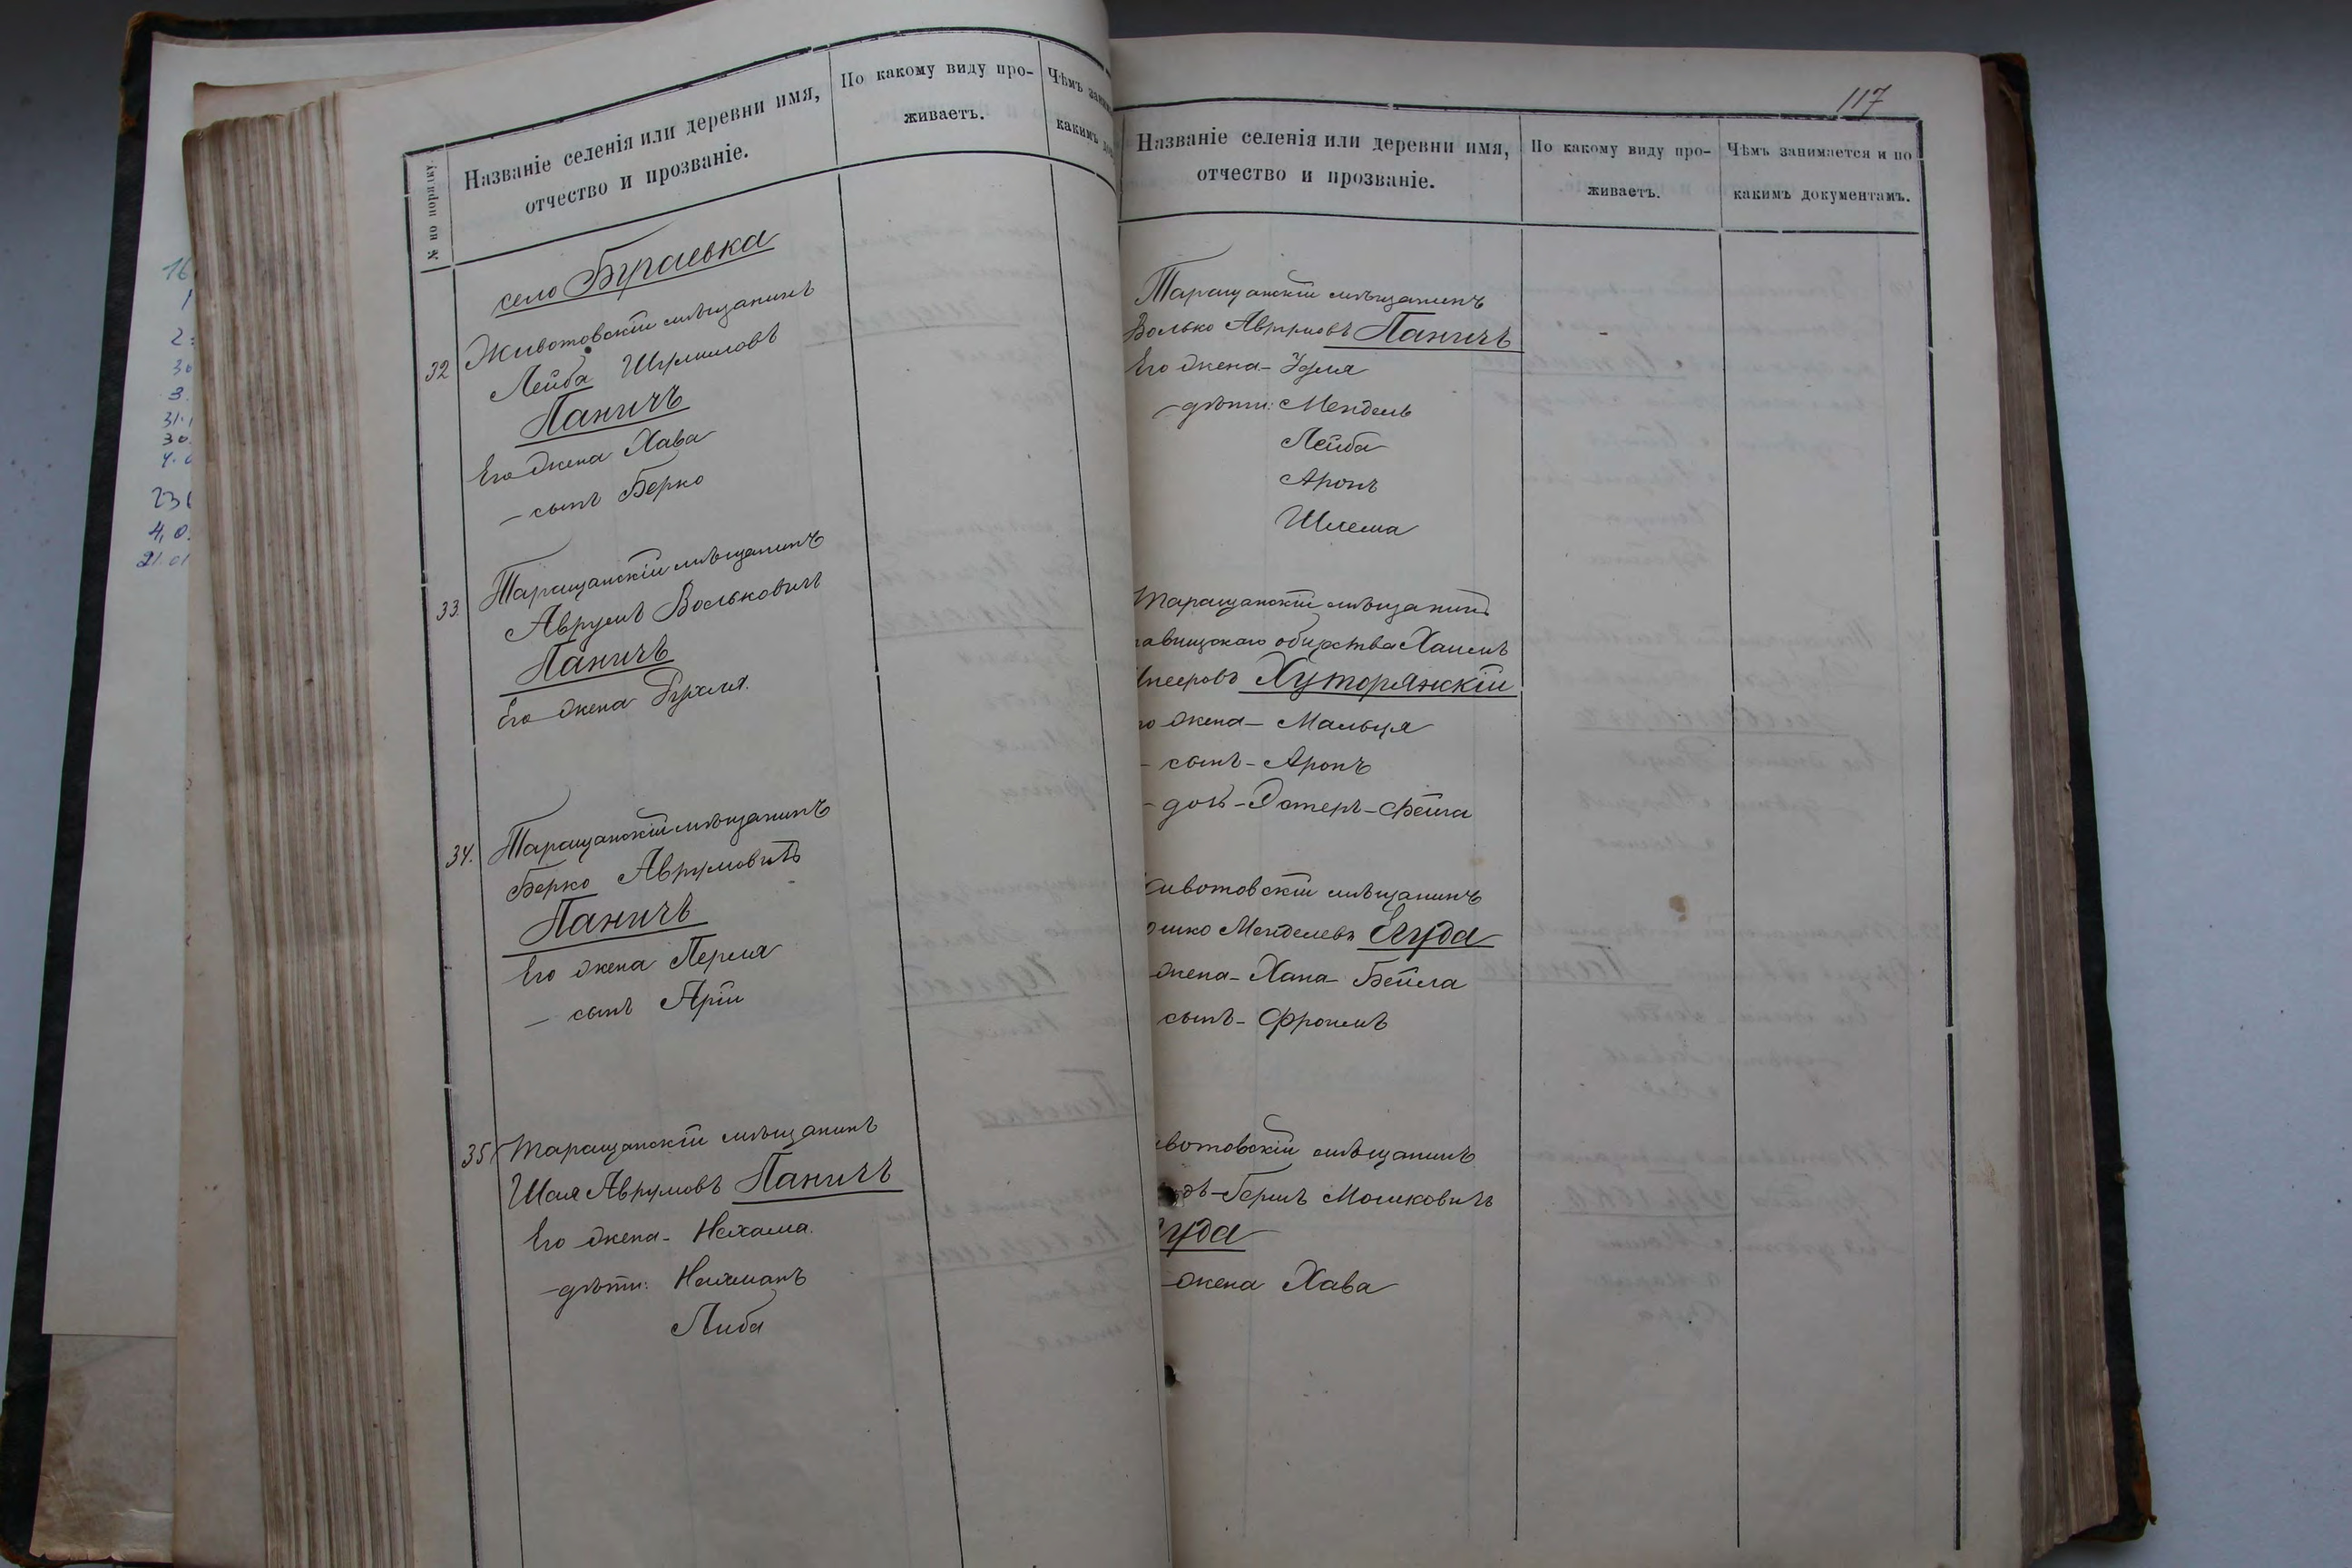 № по порядку.
Названіе селенія или деревни имя,
отчество и прозваніе.
По какому виду про-
живаетъ.
Чѣмъ
какимъ
село Бугаевка
32 Животовскій мѣщанинъ
Лейба Шулимовъ
Паничъ
Его жена Хава
— сынъ Берко
33. Таращанскій мѣщанинъ
Аврумъ Вольковичъ
Паничъ
Его жена Рухля.
34. Таращанскій мѣщанинъ
Берко Аврумовичъ
Паничъ
Его жена Перля
— сынъ Арій
35 Таращанскій мѣщанинъ
Шая Аврумовъ Паничъ
Его жена - Нехама.
— дѣти: Нахманъ
Либа
117
Названіе селенія или деревни имя,
отчество и прозваніе.
По какому виду про-
живаетъ.
Чѣмъ занимается и по
какимъ документамъ.
Таращанскій мѣщанинъ
Волько Аврумовъ Паничъ
Его жена - Удля
— дѣти: Мендель
Лейба
Аронъ
Шлема
Таращанскій мѣщанинъ
общества Хаимъ
Хуторянскій
жена - Мальця
- сынъ - Аронъ
- дочь - Эстеръ - Фейга
мѣщанинъ
Менделевъ Ягуда
жена - Хана - Бейла
сынъ - Фроимъ
мѣщанинъ
Гершъ Мошковичъ
жена Хава